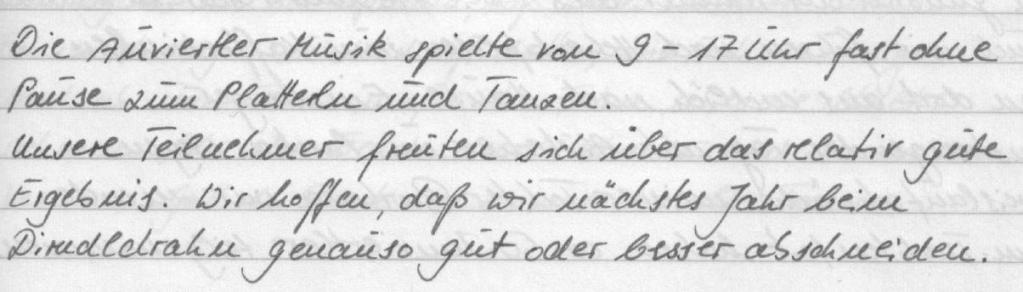 Die Auviertler Musik spielte von 9-17 Uhr fast ohne
Pause zum Platteln und Tanzen.
Unsere Teilnehmer freuten sich über das relativ gute
Ergebnis. Wir hoffen, daß wir nächstes Jahr beim
Dirndldrahn genauso gut oder besser abschneiden.